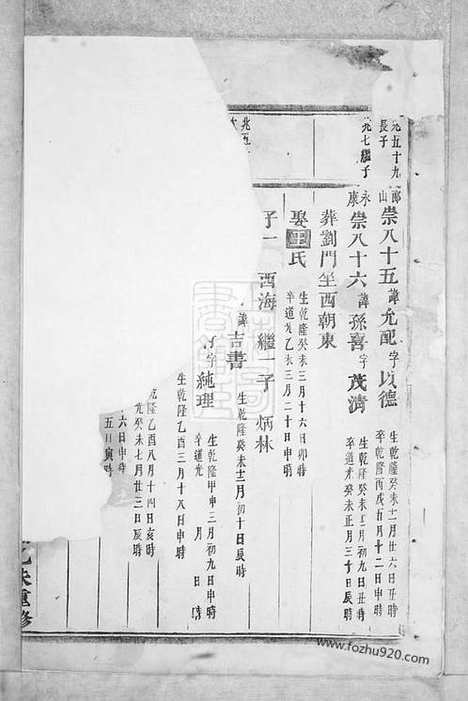 允五十九郎山崇八十五諱允配字以德 生乾隆癸未十二月廿六日丑時
長子 卒乾隆丙戌五月十二日申時
允七繼子永康崇八十六諱孫喜字茂清 生乾隆癸未十二月初九日丑時
卒道光癸未正月三十日辰時
葬劉門坐西朝東
娶王氏 生乾隆癸未三月十六日卯時
卒道光乙未三月二十日申時
子一 西海 繼一子 炳林
諱吉書 生乾隆癸未十二月初十日辰時
字純理 生乾隆甲申三月初九日申時
卒道光 月 日 時
生乾隆乙酉三月十八日申時
乾隆乙酉八月十四日亥時
光癸未七月廿三日辰時
六日申時
五日寅時
北五
乙未重修
www.fozhu920.com